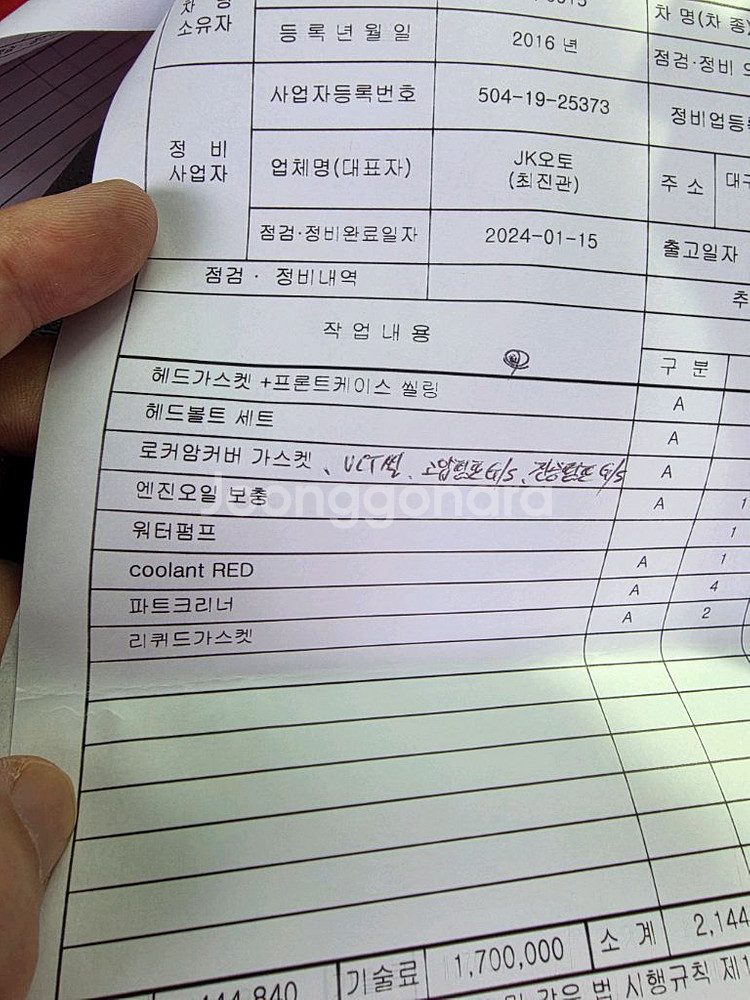 소유자
등 록 년 월 일 2016 년 차 명(차 종)
점검·정비
정 비
사업자
사업자등록번호 504-19-25373 정비업등록
업체명(대표자) JK오토
(최진관) 주 소 대구
점검·정비완료일자 2024-01-15 출고일자
점검 · 정비내역
작 업 내 용 구 분
헤드가스켓 +프론트케이스 씰링 A
헤드볼트 세트 A
로커암커버 가스켓 、 VCT씰 、 고압펌프 G/S 、 진공펌프 G/S A
엔진오일 보충 A 1
워터펌프 1
coolant RED A 1
파트크리너 A 4
리퀴드가스켓 A 2
Joonggonara
444,840 기술료 1,700,000 소 계 2,144
및 같은 법 시행규칙 제1